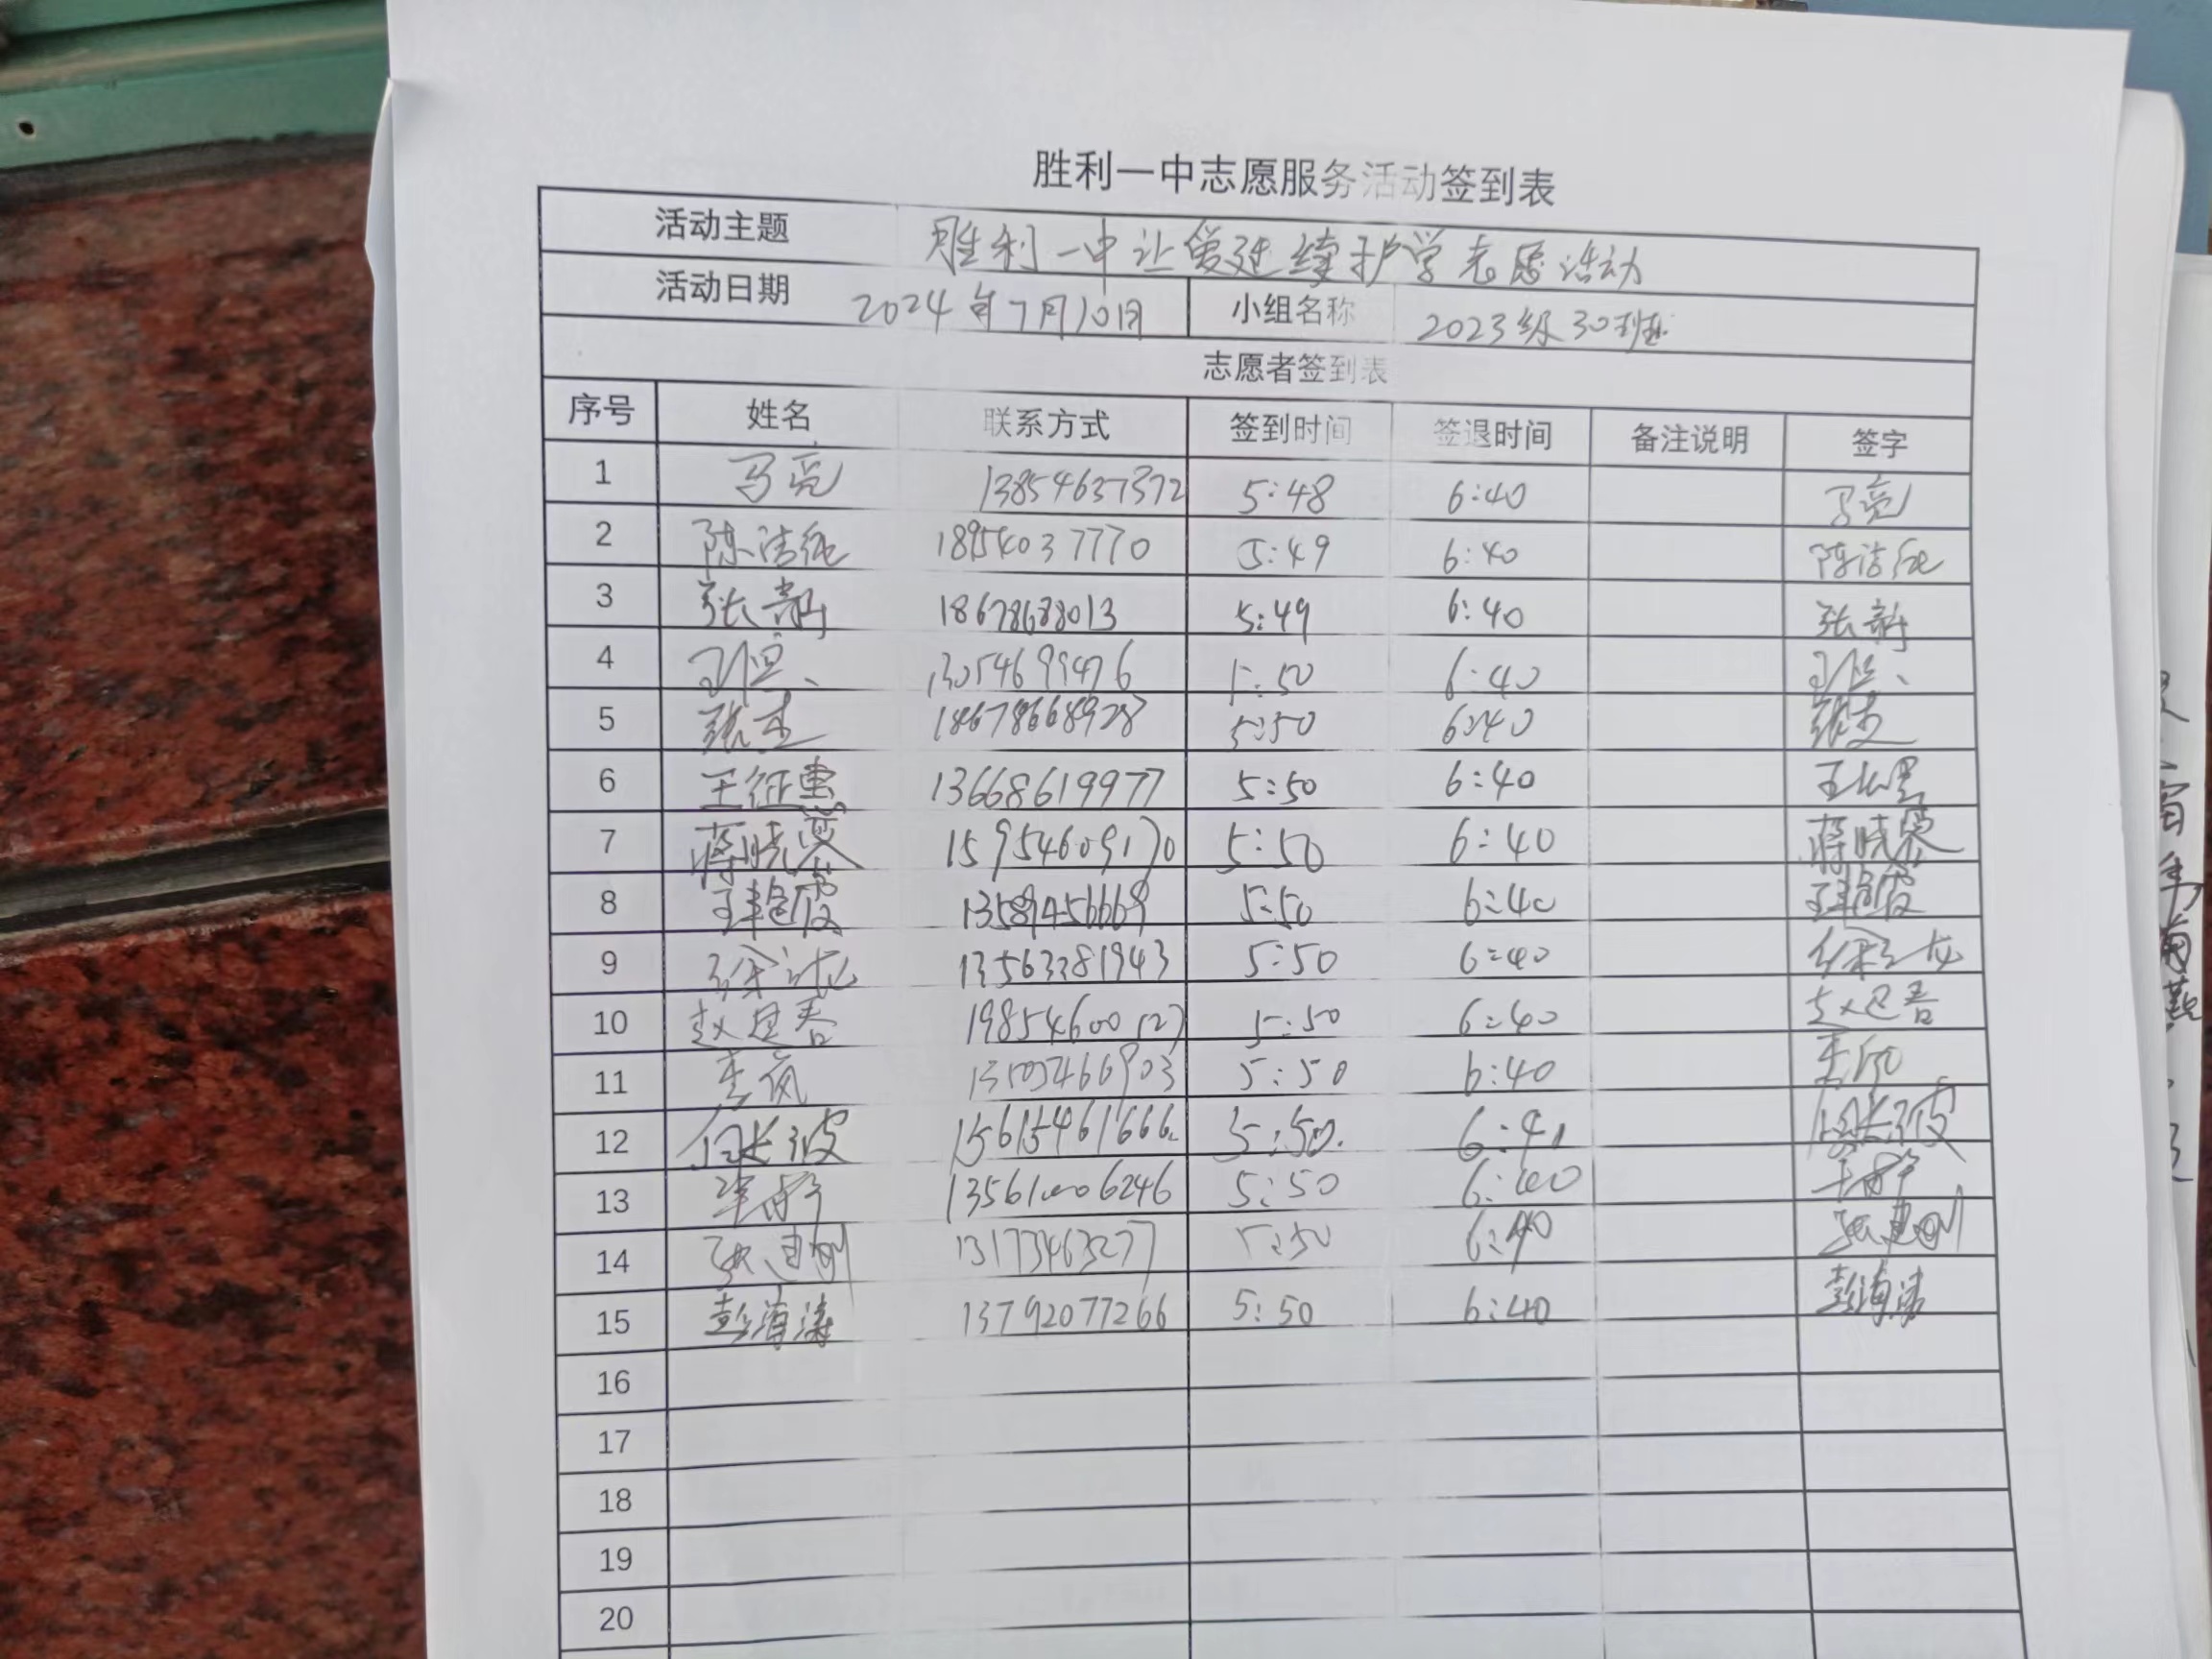 胜利一中志愿服务活动签到表
活动主题 胜利一中让爱延续护学志愿活动
活动日期 2024年7月10日 小组名称 2023级30班
志愿者签到表
序号 姓名 联系方式 签到时间 签退时间 备注说明 签字
1 马亮 13854637372 5:48 6:40 马亮
2 陈洁纯 18954037770 5:49 6:40 陈洁纯
3 张蔚 18678688013 5:49 6:40 张蔚
4 13054699476 5:50 6:40
5 18678668928 5:50 6:40
6 王征惠 13668619977 5:50 6:40
7 蒋晓蓉 15954609170 5:50 6:40 蒋晓蓉
8 王艳霞 13589456669 5:50 6:40 王艳霞
9 13563381943 5:50 6:40
10 赵建春 5:50 6:40 赵建春
11 李岚 5:50 6:40
12 15615461666 5:50
13 5:50 6:40
14 张建刚 13173463277 5:50 6:40 张建刚
15 彭海涛 13792077266 5:50 6:40 彭海涛
16
17
18
19
20